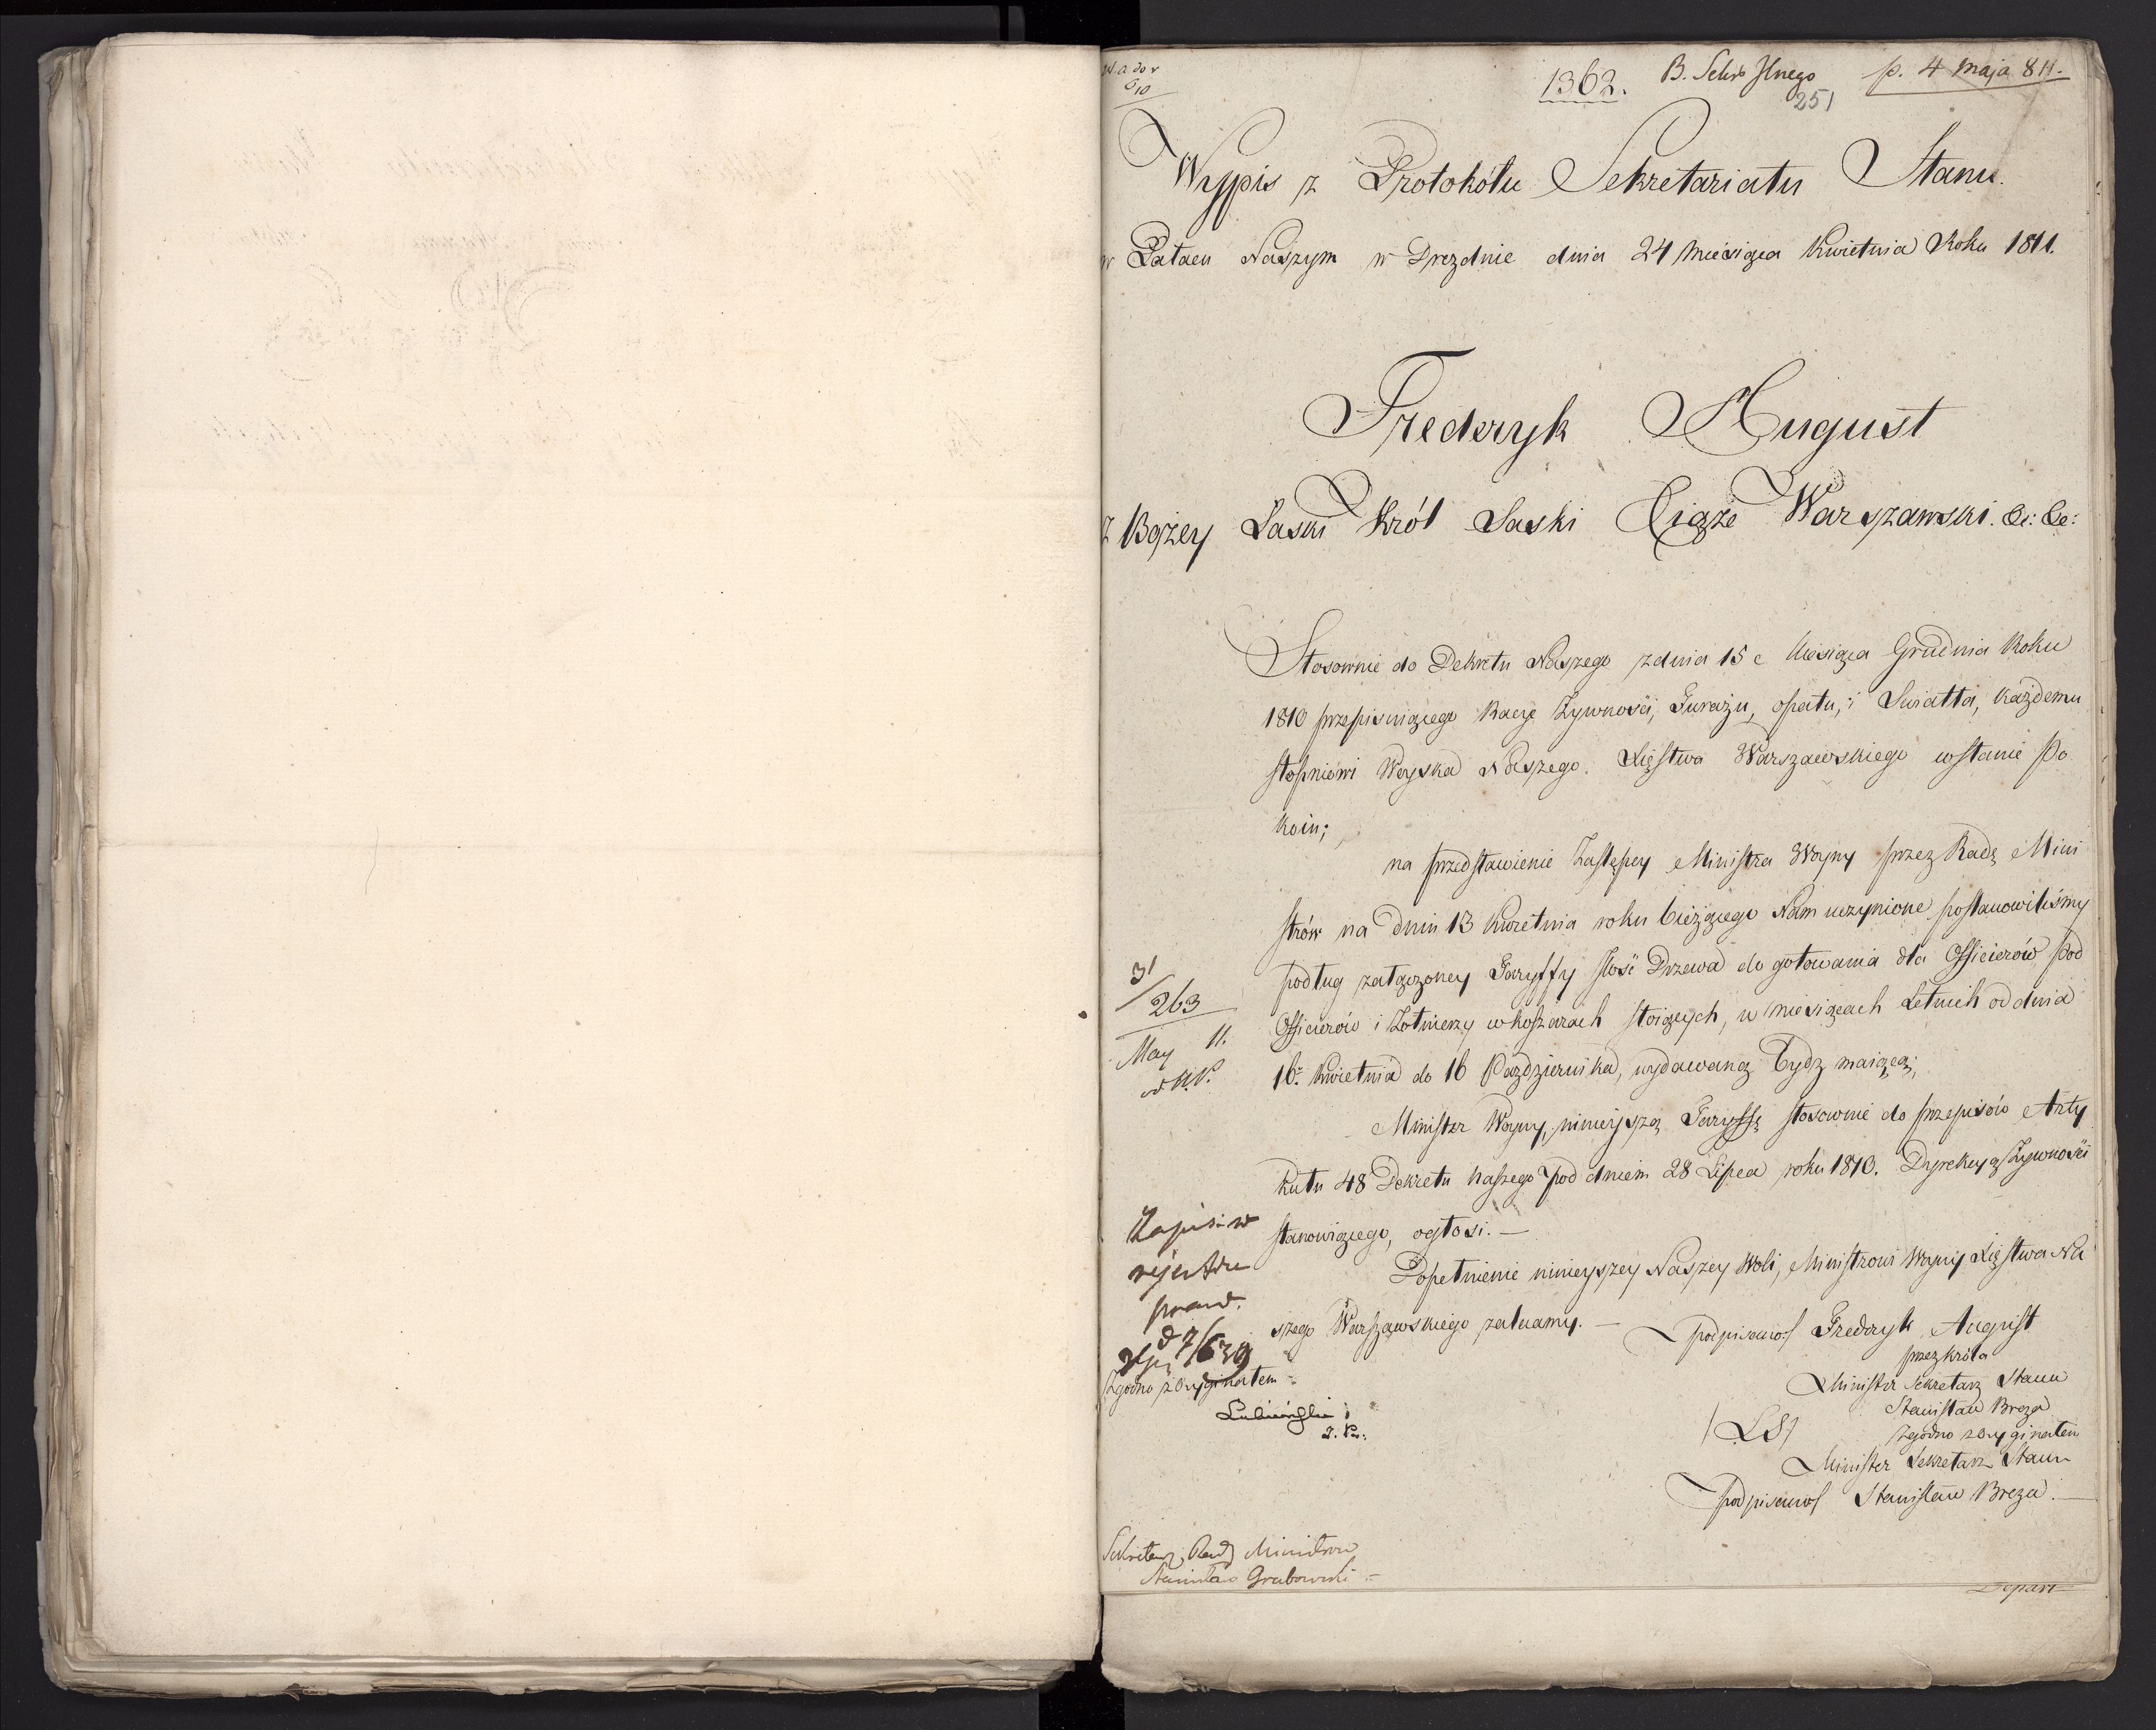 1362. B. Sekr. Jlnego p. 4 maja 811.
251
Wypis z Protokółu Sekretariatu Stanu.
w Pałacu Naszym w Dreznie dnia 24 Miesiąca Kwietnia Roku 1811.
Frederyk August
z Bożey Łaski Król Saski Xiąże Warszawski. &c: &c:
Stosownie do Dekretu Naszego z dnia 15 c Miesiąca Grudnia Roku
1810 przepisuiącego Racye Żywności, Furażu, opału, i Swiatła, każdemu
stopniowi Woyska Naszego Xięstwa Warszawskiego w stanie Po
koiu;
na przedstawienie Zastępcy Ministra Woyny przez Radę Mini
strów na dniu 13 Kwietnia roku bieżącego Nam uczynione postanowiliśmy
podług załączoney Taryffy Ilość Drzewa do gotowania dla Officierów, Pod
Officierów i Żołnierzy w koszarach stoiących, w miesiącach Letnich od dnia
16. Kwietnia do 16 Pazdziernika, wydawaną bydz maiącą;
Minister Woyny, ninieyszą Taryffę stosownie do przepisów Arty
kułu 48 Dekretu naszego pod dniem 28 Lipca roku 1810. Dyrekcyą Żywności
stanowiącego, ogłosi. —
Dopełnienie ninieyszey Naszey Woli, Ministrowi Woyny Xięstwa Na
szego Warszawskiego zalecamy. —
podpisano/ Frederyk August
przez króla
Minister Sekretarz Stanu
Stanisław Breza
/LS/ Zgodno z Oryginałem
Minister Sekretarz Stanu
podpisano/ Stanisław Breza. —
31/263
May 11.
Zapis: w
rejestru
praw.
d 7/639
Zgodno z Oryginałem
Lubieński
Sekretarz Rady Ministrów
Stanisław Grabowski
Depart